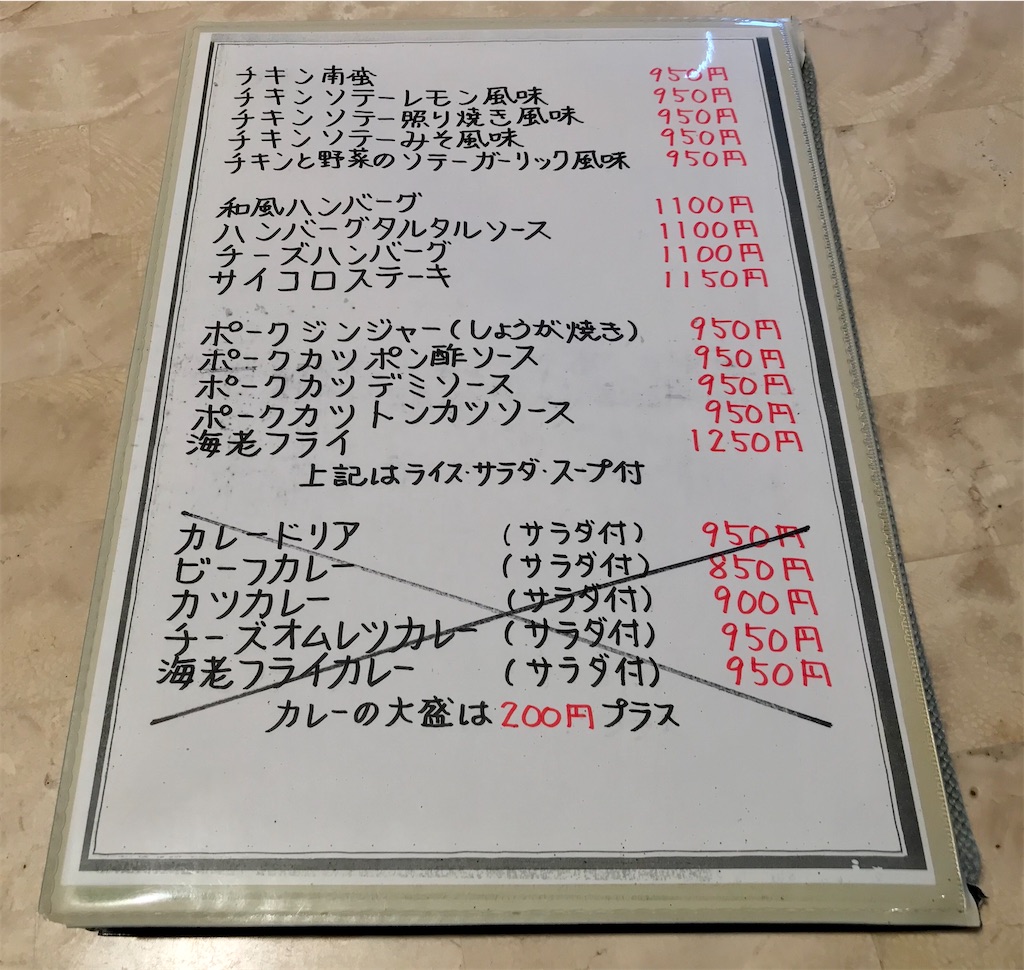 チキン南蛮 950円
チキンソテーレモン風味 950円
チキンソテー照り焼き風味 950円
チキンソテーみそ風味 950円
チキンと野菜のソテーガーリック風味 950円
和風ハンバーグ 1100円
ハンバーグタルタルソース 1100円
チーズハンバーグ 1100円
サイコロステーキ 1150円
ポークジンジャー(しょうが焼き) 950円
ポークカツポン酢ソース 950円
ポークカツデミソース 950円
ポークカツトンカツソース 950円
海老フライ 1250円
上記はライス・サラダ・スープ付
カレードリア (サラダ付) 950円
ビーフカレー (サラダ付) 850円
カツカレー (サラダ付) 900円
チーズオムレツカレー (サラダ付) 950円
海老フライカレー (サラダ付) 950円
カレーの大盛は200円プラス